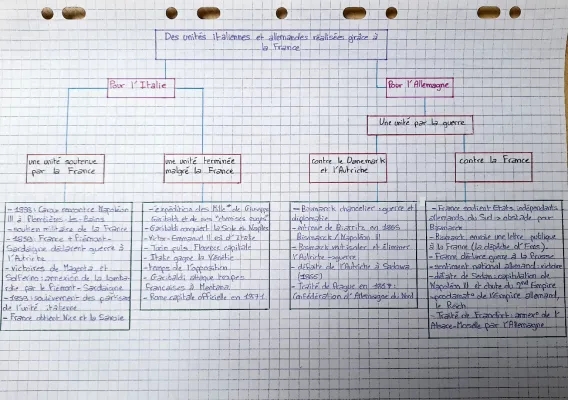 Des unités italiennes et allemandes réalisées grâce à
la France
Pour l'Italie
Pour l'Allemagne
Une unité par la guerre
une unité soutenue
par la France
une unité terminée
malgré la France
contre le Danemark
et l'Autriche
contre la France
Cavour rencontre Napoléon
III à Plombières-les-Bains
- soutien militaire de la France
- 1859 : France & Piémont-
Sardaigne déclarent guerre à
l'Autriche
- victoires de Magenta et
Solferino : annexion de la Lombar-
die par le Piémont-Sardaigne
soulèvement des partisans
de l'unité italienne
- France obtient Nice et la Savoie
- expédition des Mille de Giuseppe
Garibaldi et de ses "chemises rouges"
Garibaldi conquiert la Sicile et Naples
- Victor-Emmanuel II roi d'Italie
- Turin puis Florence capitale
- Italie gagne la Vénétie
- temps de l'opposition
- Garibaldi attaque troupes
Françaises à Mentana
- Rome capitale officielle en 1871
- Bismarck chancelier : guerre et
diplomatie
- entrevue de Biarritz en 1865
Bismarck / Napoléon III
- Bismarck veut isoler et éliminer
l'Autriche → guerre
- défaite de l'Autriche à Sadowa
- Traité de Prague en
Confédération d'Allemagne du Nord
- France soutient Etats indépendants
allemands du Sud → obstacle pour
Bismarck
- Bismarck envoie une lettre publique
à la France (la dépêche d'Ems)
- France déclare guerre à la Prusse
- sentiment national allemand, victoire
- défaite de Sedan : capitulation de
Napoléon III et chute du 2nd Empire
- proclamat° de l'Empire allemand,
le Reich
- Traité de Francfort : annex° de l'
Alsace-Moselle par l'Allemagne